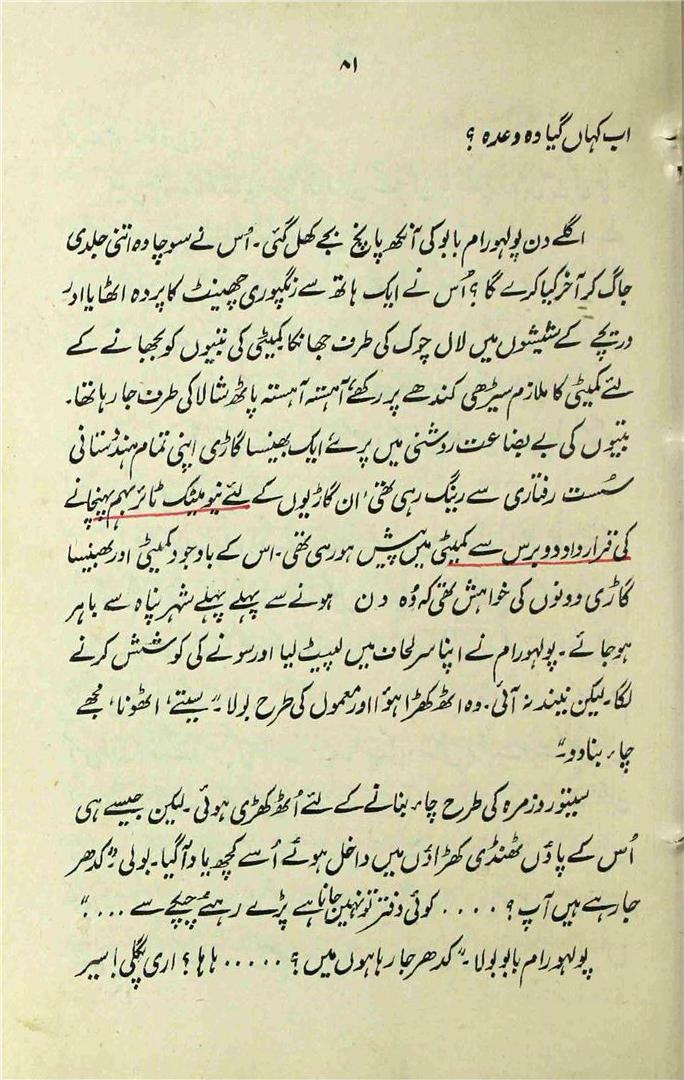 ۸۱
اب کہاں گیا وہ وعدہ ؟
اگلے دن پولہورام بابو کی آنکھ پانچ بجے کھل گئی۔ اُس نے سوچا وہ اتنی جلدی
جاگ کر آخر کیا کرے گا ؟ اُس نے ایک ہاتھ سے رنگپوری چھینٹ کا پردہ اٹھایا اور
دریچے کے شیشوں میں لال چوک کی طرف جھانکا کمیٹی کی بتیوں کو بجھانے کے
لئے کمیٹی کا ملازم سیڑھی کندھے پر رکھے، آہستہ آہستہ پاٹھ شالا کی طرف جا رہا تھا۔
بتیوں کی بے بضاعت روشنی میں پرے ایک بھینسا گاڑی اپنی تمام ہندوستانی
سُست رفتاری سے رینگ رہی تھی، ان گاڑیوں کے لئے نیومیٹک ٹائر بہم پہنچانے
کی قرارداد دو برس سے کمیٹی میں پیش ہو رہی تھی۔ اس کے باوجود کمیٹی اور بھینسا
گاڑی دونوں کی خواہش تھی کہ وُہ دن ہونے سے پہلے پہلے شہر پناہ سے باہر
ہو جائے۔ پولہورام نے اپنا سر لحاف میں لپیٹ لیا اور سونے کی کوشش کرنے
لگا۔ لیکن نیند نہ آئی۔ وہ اٹھ کھڑا ہؤا اور معمول کی طرح بولا۔ "سیتے، اٹھونا، مجھے
چاء بنا دو۔"
سیتو روزمرہ کی طرح چاء بنانے کے لئے اُٹھ کھڑی ہوئی۔ لیکن جیسے ہی
اُس کے پاؤں ٹھنڈی کھڑاؤں میں داخل ہوئے اُسے کچھ یاد آگیا۔ بولی "کدھر
جا رہے ہیں آپ ؟ .... کوئی دفتر تو نہیں جانا ہے پڑے رہئے چپکے سے ...."
پولہورام بابو بولا۔ "کدھر جا رہا ہوں میں ؟ ..... ہا ہا ؟ اری پگلی! سیر